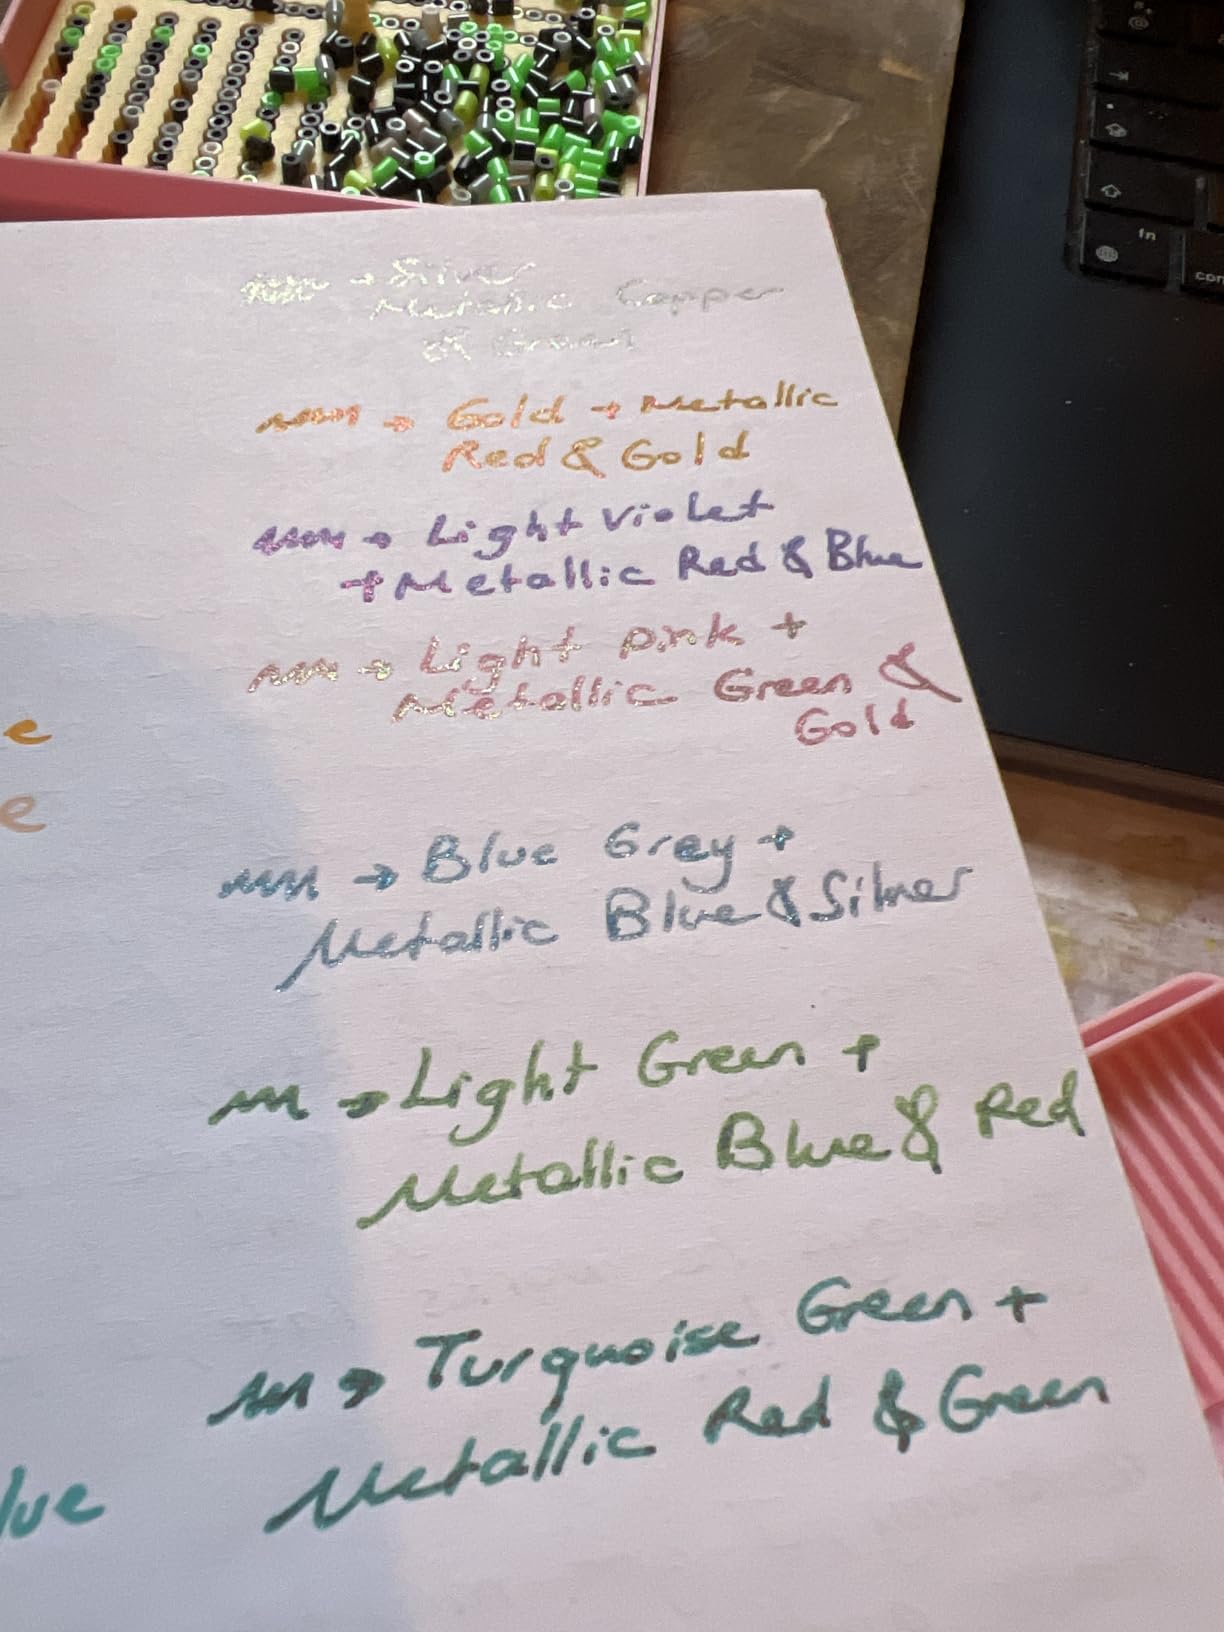 fn
→ Silver
Metallic Copper
& Green
→ Gold → Metallic
Red & Gold
→ Light Violet
+ Metallic Red & Blue
→ Light Pink +
Metallic Green &
Gold
e
e
→ Blue Grey +
Metallic Blue & Silver
→ Light Green +
Metallic Blue & Red
→ Turquoise Green +
Metallic Red & Green
lue